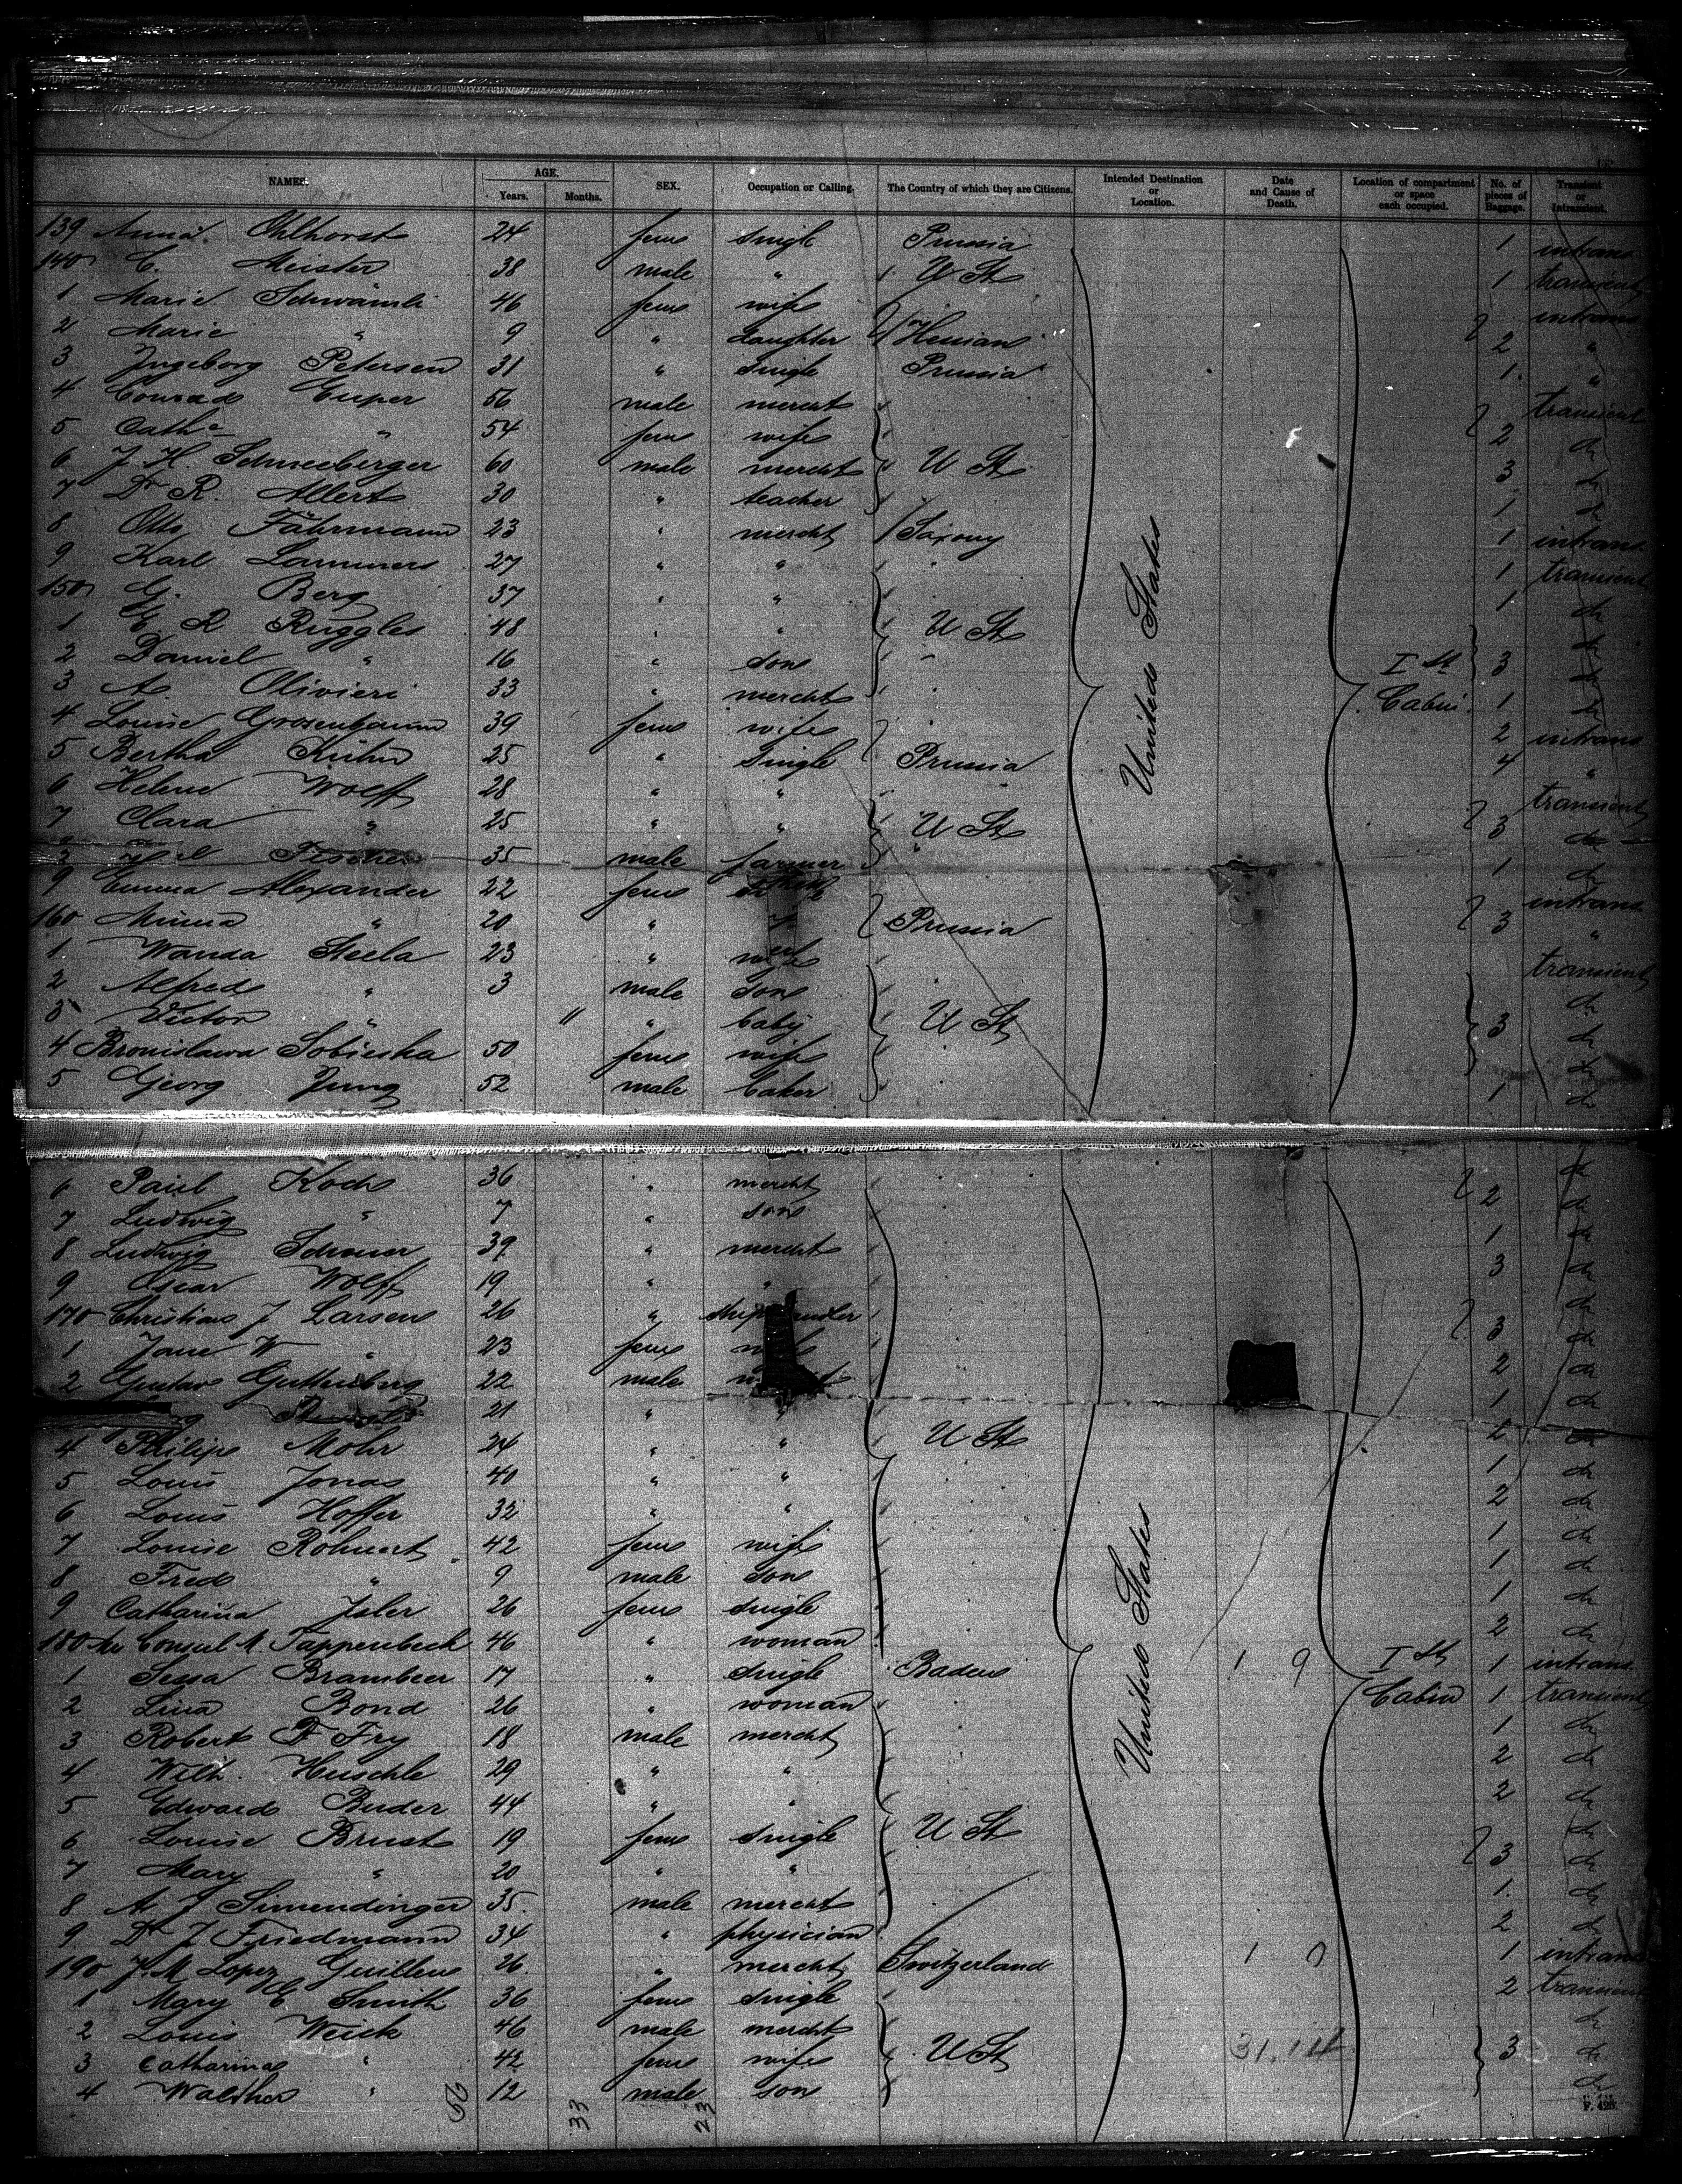 NAMES. AGE. Years. Months. SEX. Occupation or Calling. The Country of which they are Citizens. Intended Destination or Location. Date and Cause of Death. Location of compartment or space each occupied. No. of pieces of Baggage. Transient or Intransient.
139 Anna Ohlhorst 24 fem single Prussia 1 intrans
140 C. Meister 38 male " U St 1 transient
1 Marie Schwämli 46 fem wife intrans
2 Marie " 9 " daughter Hessian 2 "
3 Ingeborg Petersen 31 " single Prussia 1 "
4 Conrad Euper 56 male mercht transient
5 Cath^a " 54 fem wife 2 do
6 J. H. Schneeberger 60 male mercht U St 3 do
7 Dr R. Allert 30 " teacher 1 do
8 Otto Fährmann 23 " mercht Saxony 1 intrans
9 Karl Lammers 27 " " 1 transient
150 G. Berg 37 " " 1 do
1 E R Ruggles 48 " " U St do
2 Daniel " 16 " son I St 3 do
3 A. Olivieri 33 " mercht Cabin 1 do
4 Louise Grosenbaum 39 fem wife 2 intrans
5 Bertha Kühn 25 " single Prussia 4 "
6 Helene Wolff 28 " " transient
7 Clara " 25 " " U St 3 do
Fischer 35 male farmer " 1 do
9 Emma Alexander 22 fem intrans
160 Minna " 20 " Prussia 3 "
1 Wanda Steela 23 " transient
2 Alfred " 3 male son do
3 Victor " 11 " baby U St 3 do
4 Bronislawa Sobieska 50 fem wife do
5 Georg Jung 52 male baker 1 do
United States
6 Paul Koch 36 " mercht do
7 Ludwig " 7 " son 2 do
8 Ludwig 39 " mercht 1 do
9 Oscar Wolff 19 " " 3 do
170 Christian J Larsen 26 " do
1 Jane W " 23 fem 3 do
2 Gustav Guttenberg 22 male 2 do
21 " " 1 do
4 Philip Mohr 24 " " U St do
5 Louis Jonas 40 " " 1 do
6 Louis Hoffer 32 " " 2 do
7 Louise Rohnert 42 fem wife 1 do
8 Fred " 9 male son 1 do
9 Catharina Isler 26 fem single 1 do
180 Consul M. Tappenbeck 46 " woman 2 do
1 Brambeer 17 " single Baden 1 9 I St 1 intrans
2 Lina Bond 26 " woman Cabin 1 transient
3 Robert F Fry 18 male mercht 1 do
4 Wilh. Heuschle 29 " " 2 do
5 Edward Buder 44 " " 2 do
6 Louise Brust 19 fem single U St do
7 Mary " 20 " " 3 do
8 A J Simendinger 35 male mercht 1 do
9 Dr J Friedmann 34 " physician 2 do
190 J. M Lopez Guillen 26 " mercht Switzerland 1 0 1 intrans
1 Mary E Smith 36 fem single 2 transient
2 Louis Weick 46 male mercht do
3 Catharina " 42 fem wife U St 31.14 3 do
4 Walther " 12 male son do
United States
56 33 23